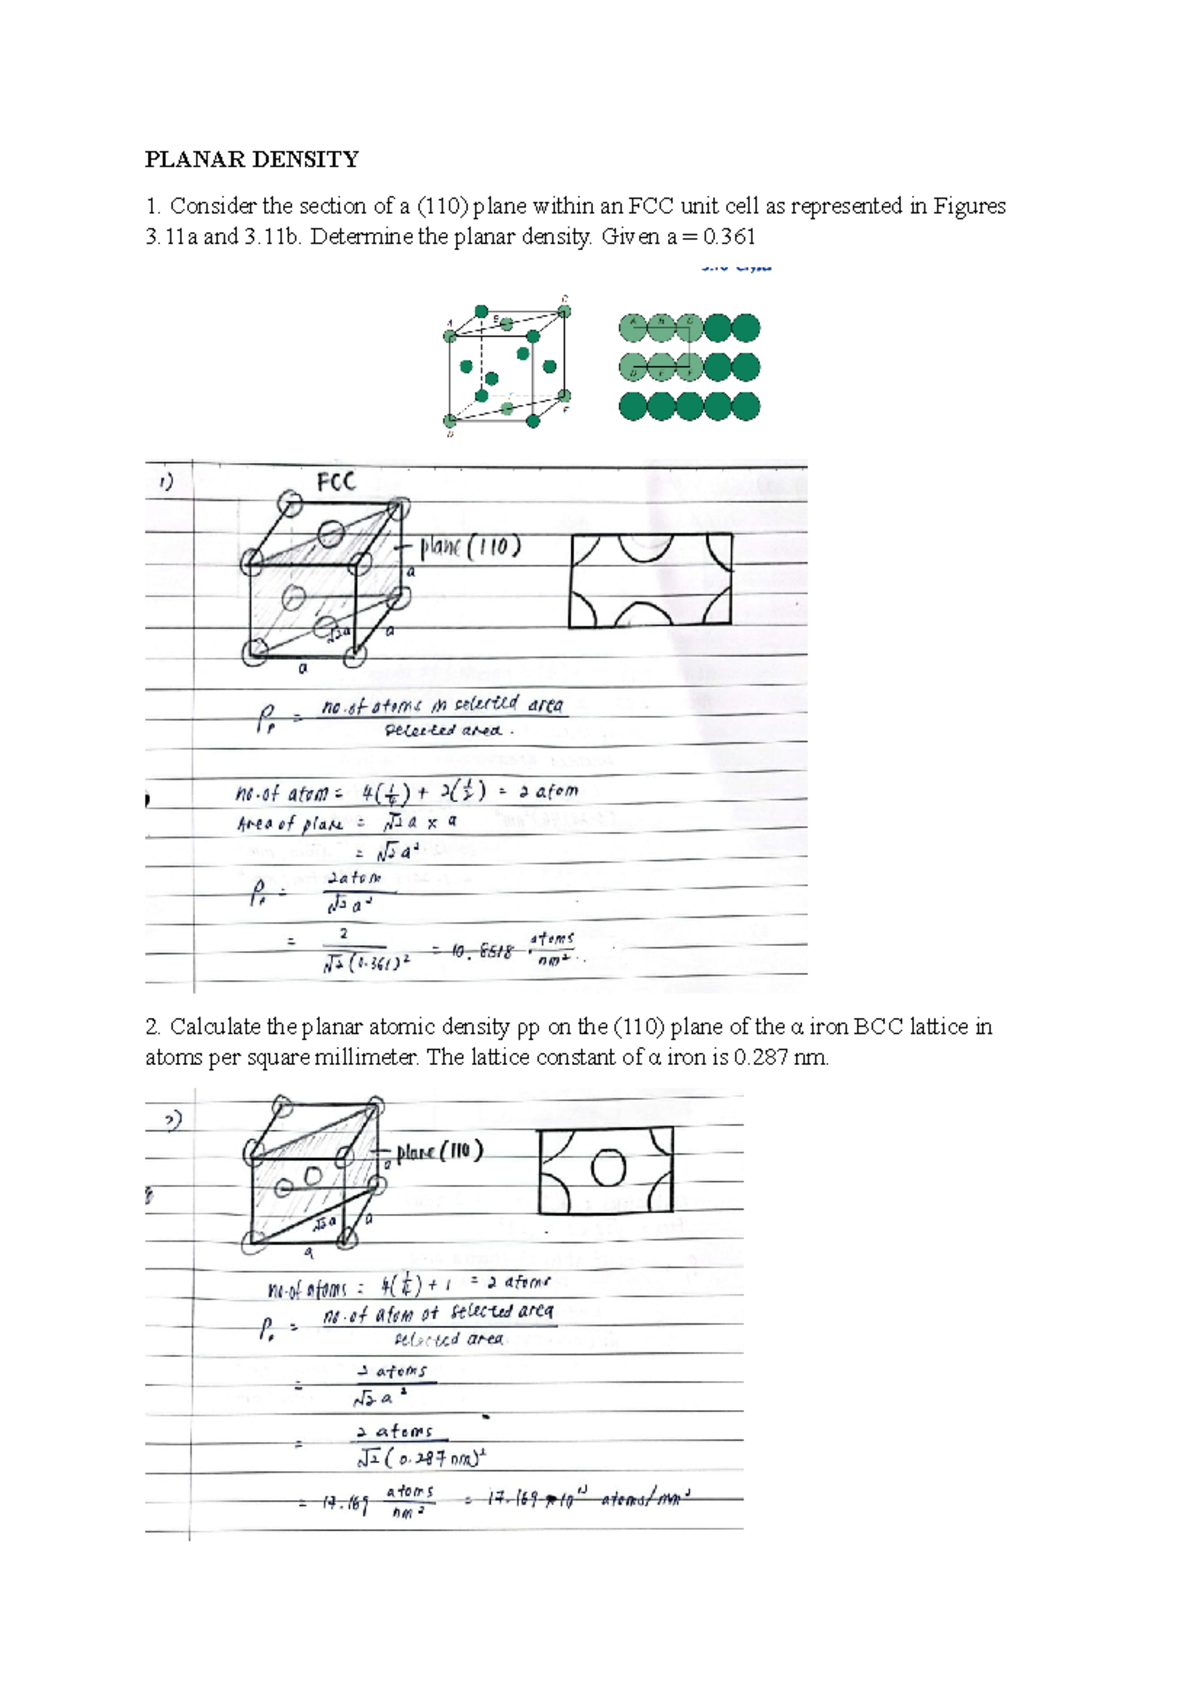 PLANAR DENSITY
1. Consider the section of a (110) plane within an FCC unit cell as represented in Figures
3.11a and 3.11b. Determine the planar density. Given a = 0.361
A
B
C
D
F
A B C
D E F
1)
FCC
plane (110)
a
√2a
a
a
ρp = no. of atoms in selected area
selected area.
no. of atom = 4(1/4) + 2(1/2) = 2 atom
Area of plane = √2 a x a
= √2 a²
ρp = 2 atom
√2 a²
= 2
√2 (0.361)² = 10.8518 atoms
nm²
2. Calculate the planar atomic density ρp on the (110) plane of the α iron BCC lattice in
atoms per square millimeter. The lattice constant of α iron is 0.287 nm.
2)
plane (110)
a
√2a
a
a
no. of atoms = 4(1/4) + 1 = 2 atoms
ρp = no. of atom of selected area
selected area
= 2 atoms
√2 a²
= 2 atoms
√2 (0.287 nm)²
= 17.169 atoms
nm² = 17.169 × 10¹² atoms/mm²